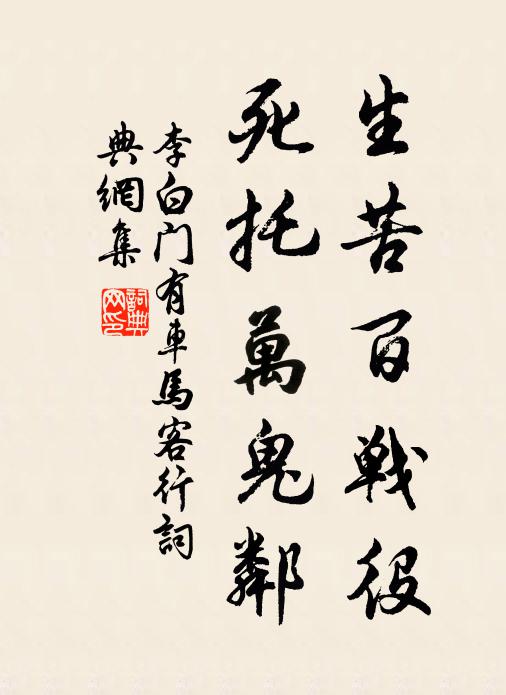 生苦百戰役
死托萬鬼鄰
李白門有車馬客行詞
典網集
詞典
网印